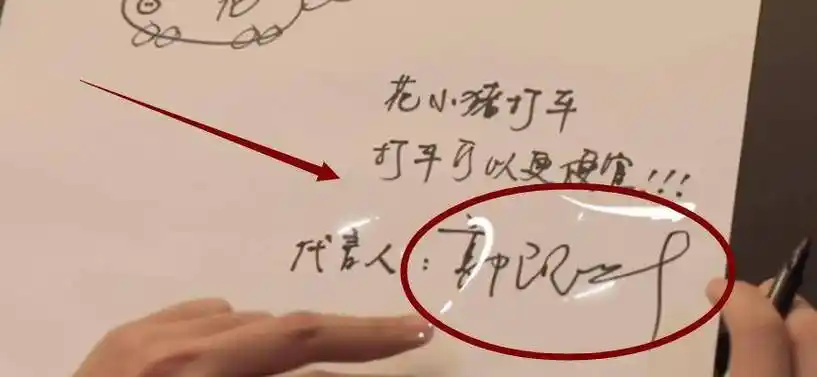 花
花小猪打车
打车可以更便宜!!!
代言人: